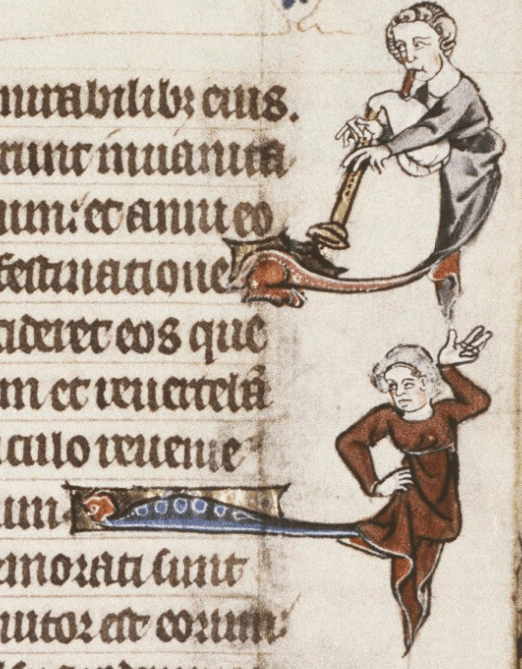 mirabilibꝫ eius.
runt in uanita
um: et anni eo
festinatione
cideret eos que
m et reuerteba
culo uenie
um
emorati sunt
iutor est eorum: